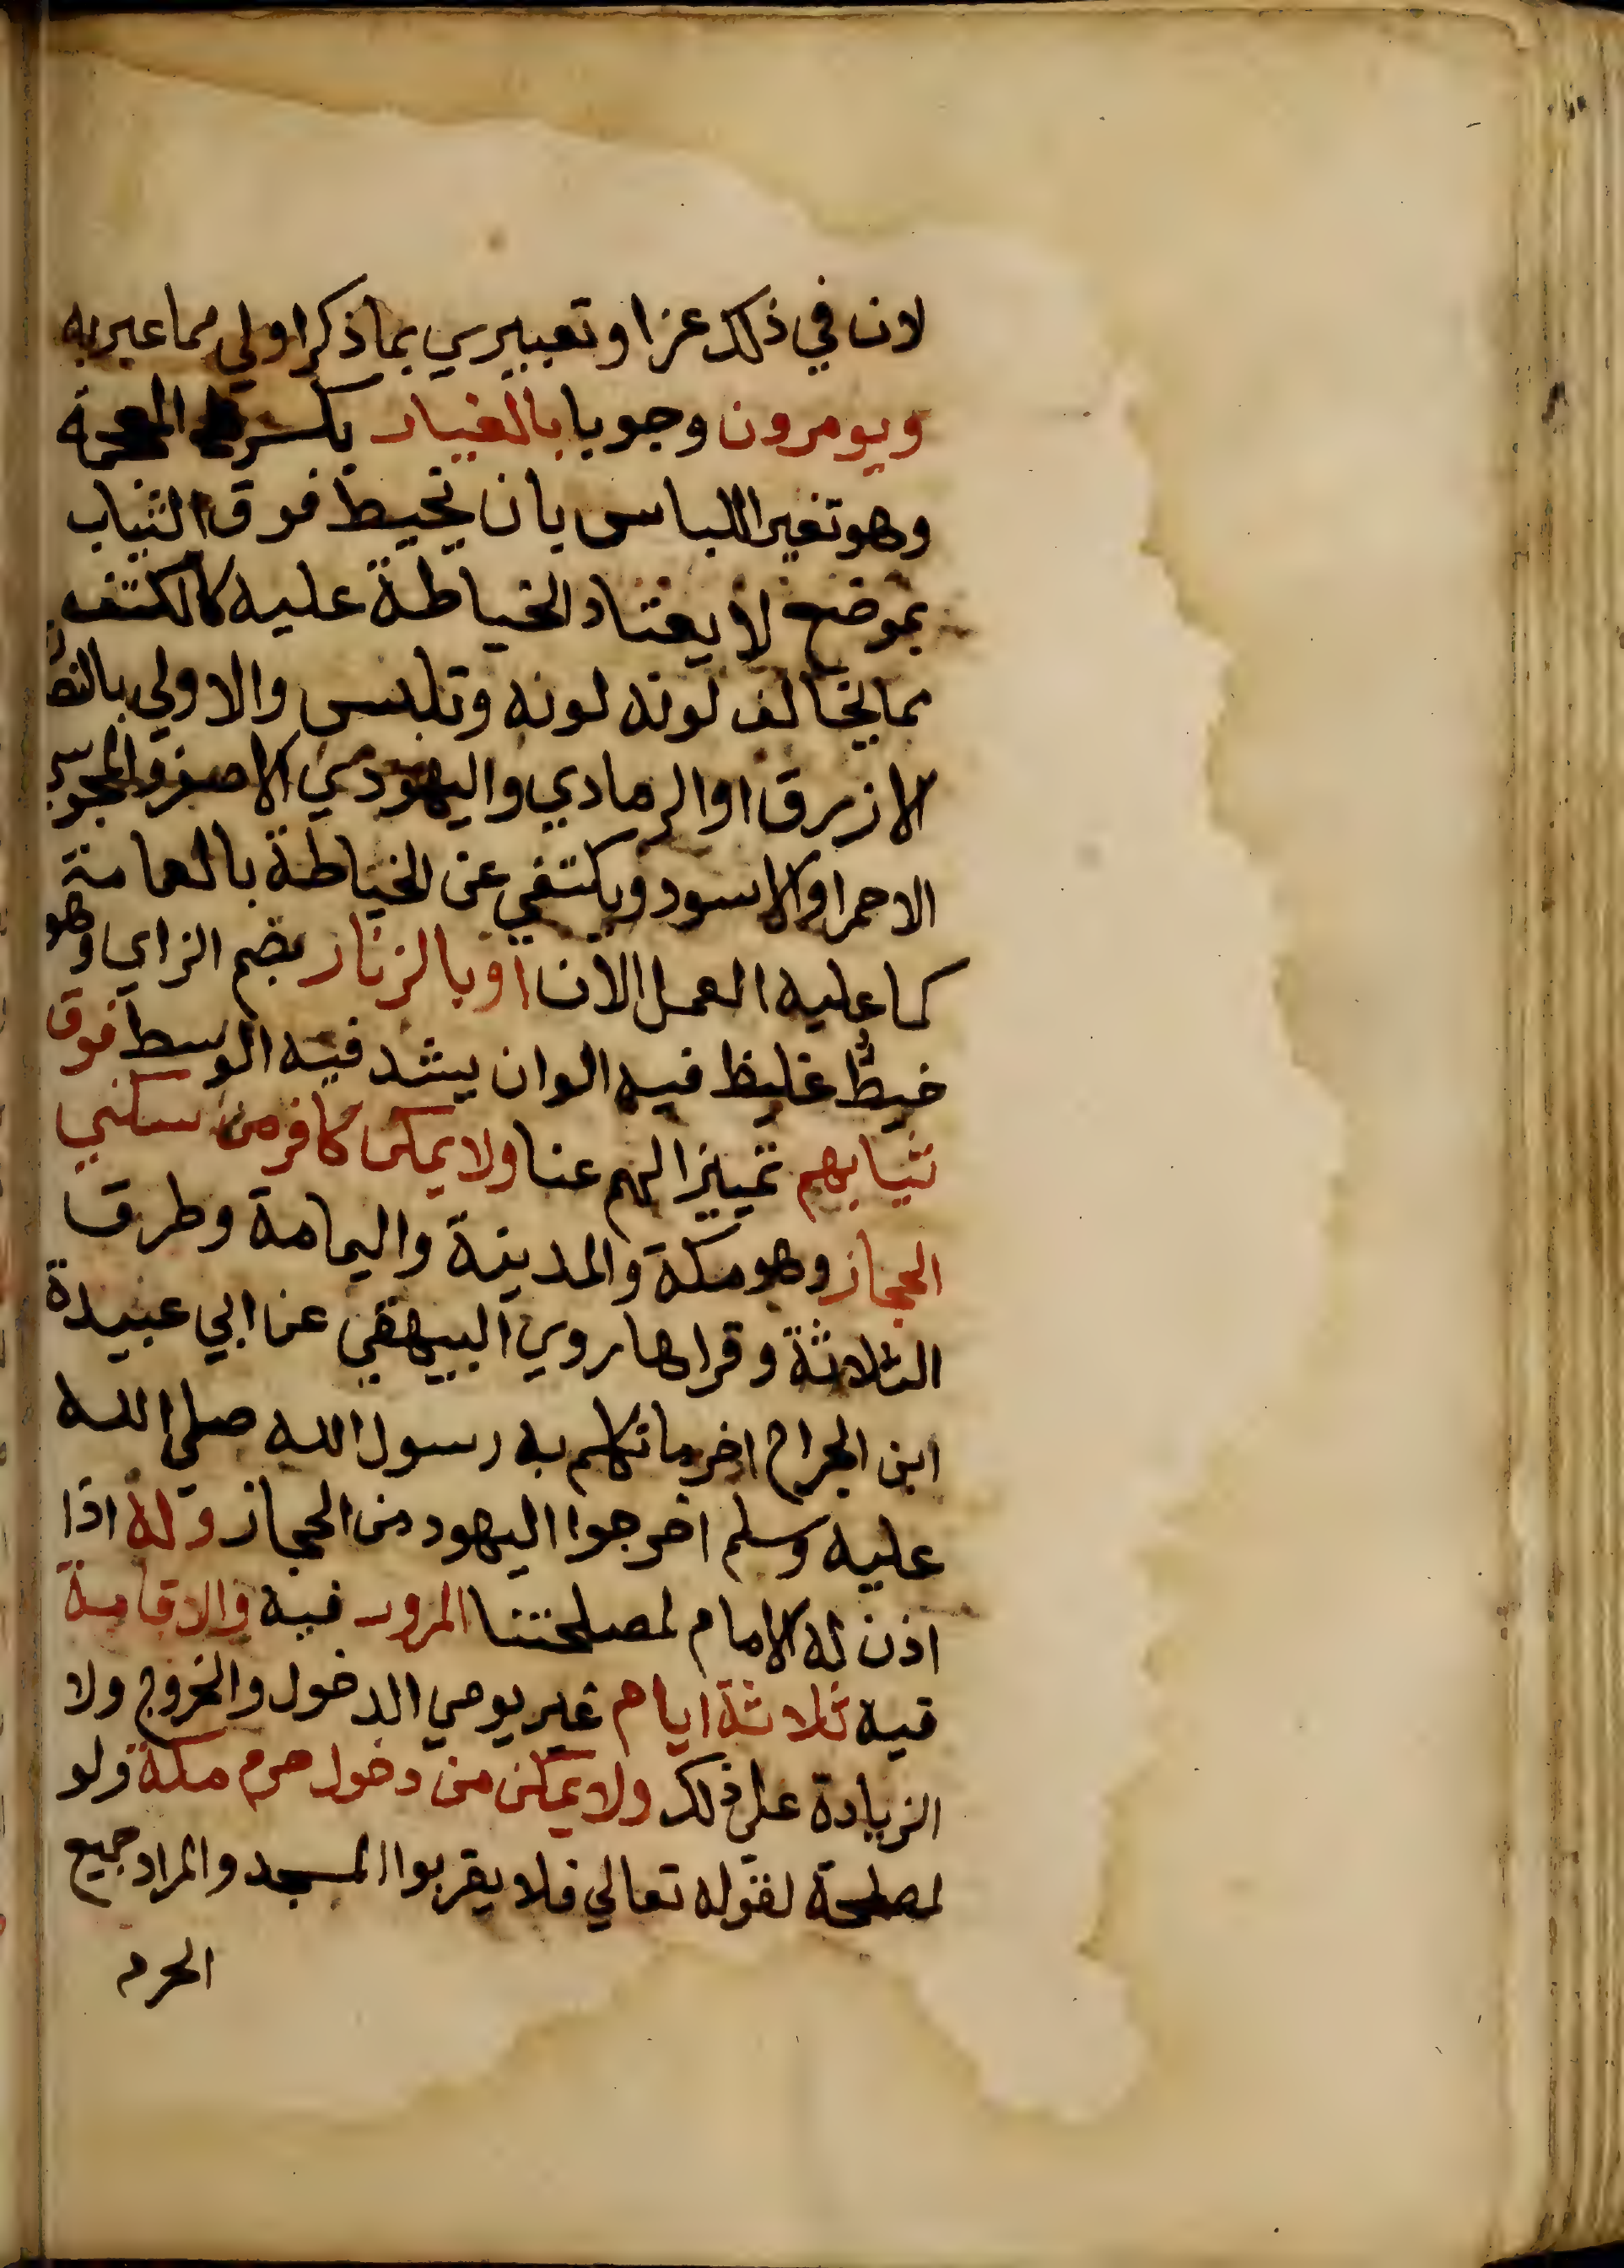 لان في ذلك عزا وتعبيري بما ذكر اولي مما عبر به
ويومرون وجوبا بالغيار بكسر المعجمة
وهو تغير اللباس بان تخيط فوق الثياب
بموضع لا يعتاد الخياطة عليه كالكتف
بما يخالف لونه لونه وتلبس والاولي بالنصا
الازرق او الرمادي واليهودي الاصفر والمجوسي
الاحمر او الاسود ويكتفي عن الخياطة بالعمامة
كما عليه العمل الان او بالزنار بضم الزاي وهو
خيط غليظ فيه الوان يشد فيه الوسط فوق
ثيابهم تمييزا لهم عنا ولا يمكن كافر من سكني
الحجاز وهو مكة والمدينة واليمامة وطرق
الثلاثة وقراها روي البيهقي عن ابي عبيدة
ابن الجراح اخر ما تكلم به رسول الله صلي الله
عليه وسلم اخرجوا اليهود من الحجاز وله اذا
اذن له الامام لمصلحتنا المرور فيه والاقامة
فيه ثلاثة ايام غير يومي الدخول والخروج ولا
الزيادة علي ذلك ولا يمكن من دخول حرم مكة ولو
لمصلحة لقوله تعالي فلا يقربوا المسجد والمراد جميع
الحرم